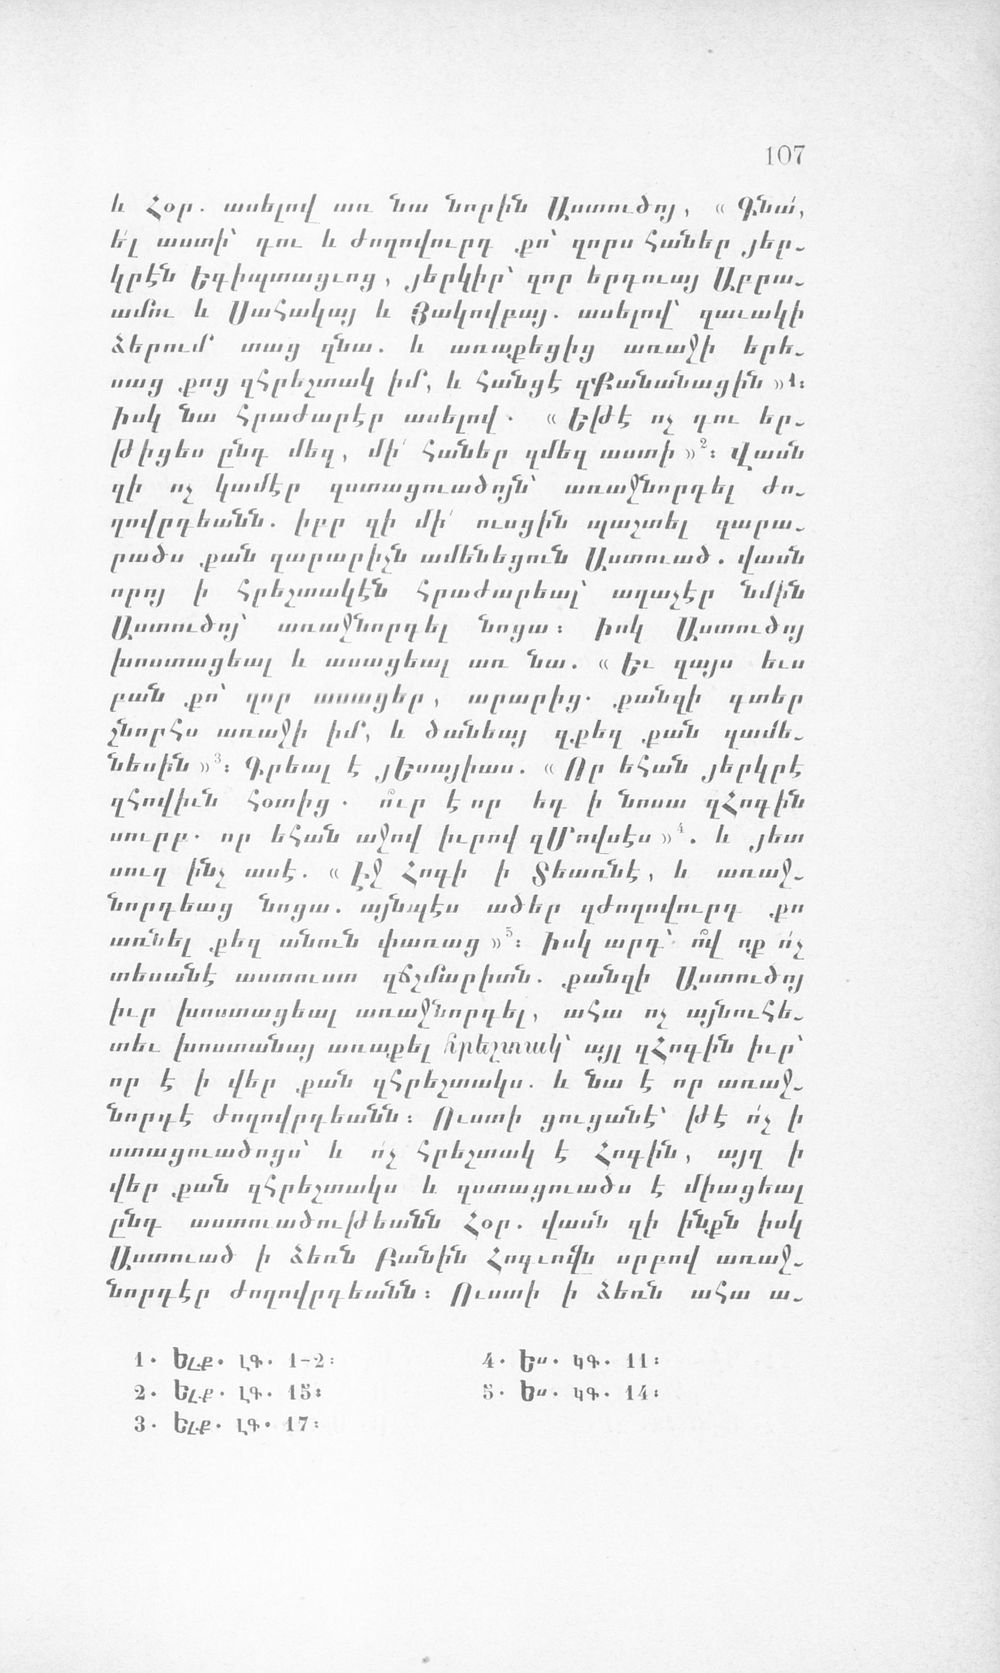 107
և Հօր. ասելով առ նա նորին Աստուծոյ, « Գնա՛,
ե՛լ աստի՝ դու և ժողովուրդ քո՝ զորս հաներ յեր֊
կրէն Եգիպտացւոց, յերկիր՝ զոր երդուայ Աբրա֊
ամու և Սահակայ և Յակովբայ. ասելով՝ զաւակի
ձերում տաց զնա. և առաքեցից առաջի երե֊
սաց քոց զհրեշտակ իմ, և հանցէ զՔանանացին »1։
իսկ նա հրաժարէր ասելով. « Եթէ ոչ դու եր֊
թիցես ընդ մեզ, մի՛ հաներ զմեզ աստի »2։ Վասն
զի ոչ կամէր զստացուածոյն՝ առաջնորդել ժո֊
ղովրդեանն. իբր զի մի՛ ուսցին պաշտել զարա֊
րածս քան զարարիչն ամենեցուն Աստուած. վասն
որոյ ի հրեշտակէն հրաժարեալ՝ աղաչէր նմին
Աստուծոյ՝ առաջնորդել նոցա։ իսկ Աստուծոյ
խոստացեալ և ասացեալ առ նա. « Եւ զայս եւս
բան քո՝ զոր ասացեր, արարից. քանզի գտեր
շնորհս առաջի իմ, և ծանեայ զքեզ քան զամե֊
նեսին »3։ Գրեալ է յԵսայիաս. « Որ եհան յերկրէ
զհովիւն հօտից. ո՞ւր է որ եդ ի նոսա զՀոգին
սուրբ. որ եհան աջով իւրով զՄովսէս »4. և յետ
սուղ ինչ ասէ. « Էջ Հոգի ի Տեառնէ, և առաջ֊
նորդեաց նոցա. այնպէս ածեր զժողովուրդ քո
առնել քեզ անուն փառաց »5։ իսկ արդ՝ ո՞վ ոք ո՛չ
տեսանէ աստուստ զճշմարիտն. քանզի Աստուծոյ
իւր խոստացեալ առաջնորդել, ահա ոչ այնուհե֊
տեւ խոստանայ առաքել հրեշտակ՝ այլ զՀոգին իւր՝
որ է ի վեր քան զհրեշտակս. և նա է որ առաջ֊
նորդէ ժողովրդեանն։ Ուստի ցուցանէ՝ թէ ո՛չ ի
ստացուածոցս՝ և ո՛չ հրեշտակ է Հոգին, այղ ի
վեր քան զհրեշտակս և զստացուածս է միացեալ
ընդ աստուածութեանն Հօր. վասն զի ինքն իսկ
Աստուած ի ձեռն Բանին Հոգւովն սրբով առաջ֊
նորդէր ժողովրդեանն։ Ուստի ի ձեռն ահա ա֊
1. Ելք. ԼԳ. 1-2։
2. Ելք. ԼԳ. 15։
3. Ելք. ԼԳ. 17։
4. Ես. ԿԳ. 11։
5. Ես. ԿԳ. 14։